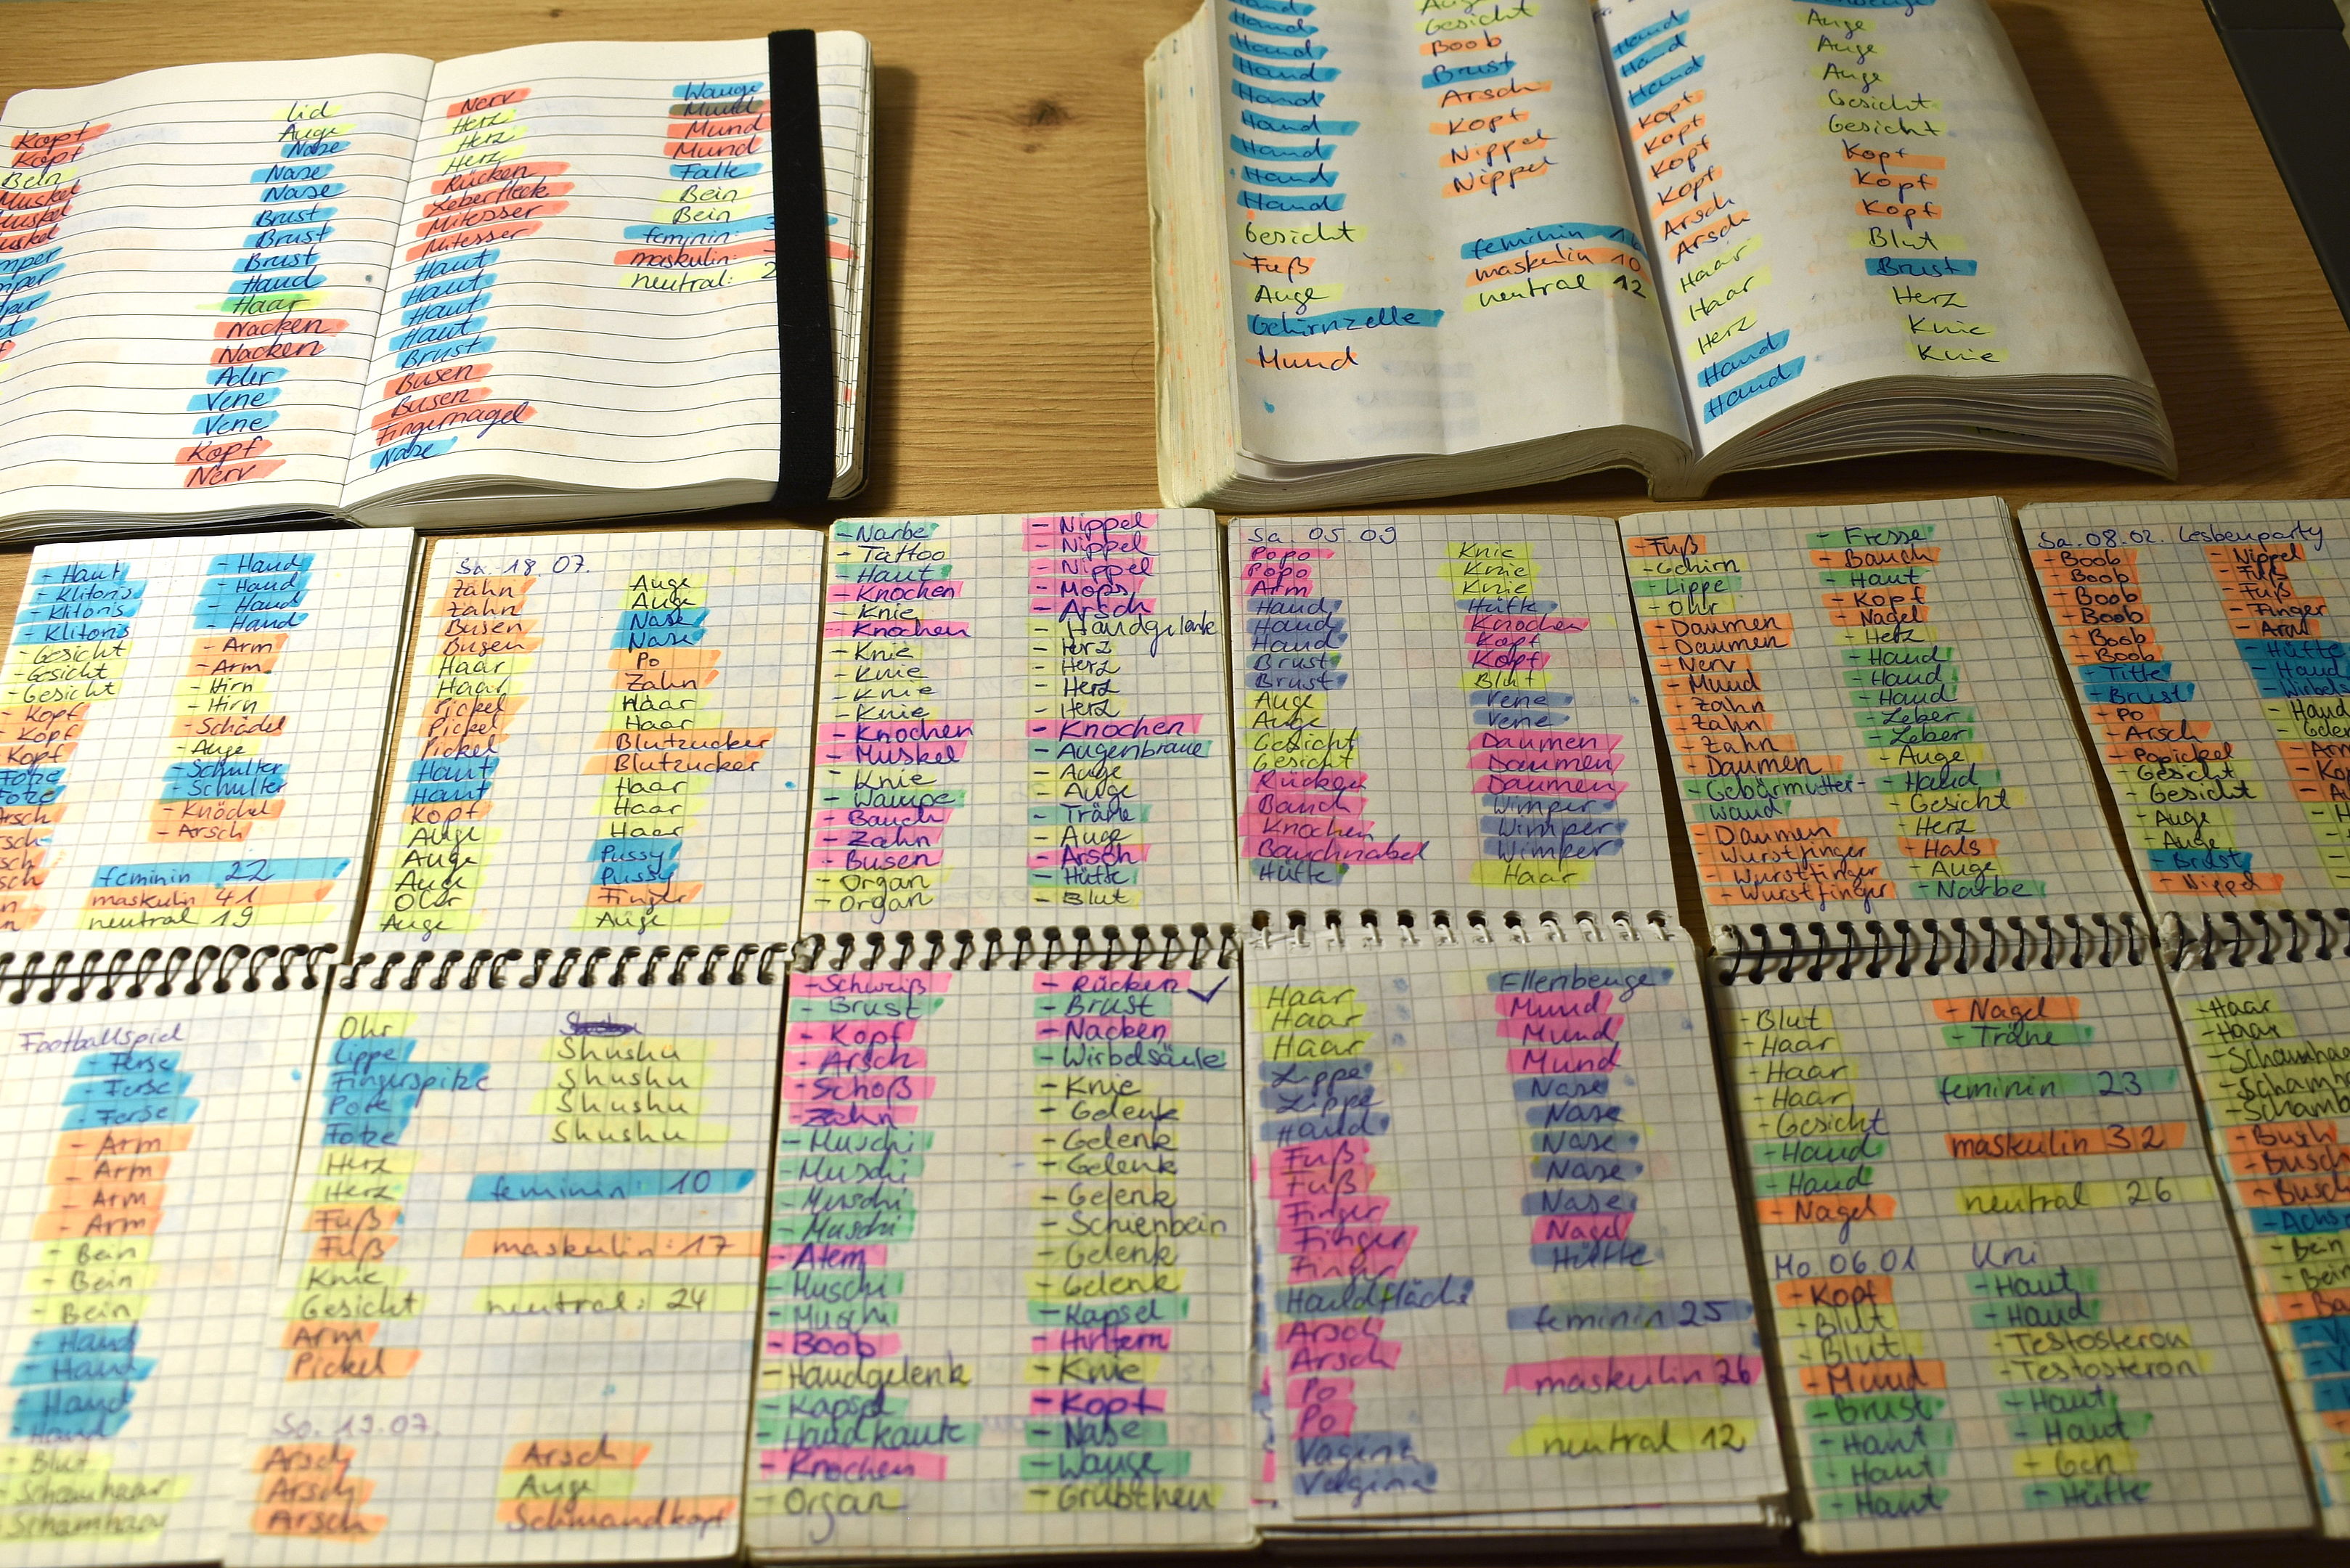 Kopf
Kopf
Bein
Muskel
Muskel
Lid
Auge
Nase
Nase
Nase
Brust
Brust
Brust
Hand
Haar
Nacken
Nacken
Ader
Vene
Vene
Kopf
Nerv
Nerv
Herz
Herz
Herz
Rücken
Leberfleck
Mitesser
Mitesser
Haut
Haut
Haut
Haut
Brust
Busen
Busen
Fingernagel
Nase
Wange
Mund
Mund
Mund
Falte
Bein
Bein
feminin:
maskulin:
neutral: 2
Hand
Hand
Hand
Hand
Hand
Hand
Hand
Hand
Hand
Gesicht
Fuß
Auge
Gehirnzelle
Mund
Auge
Gesicht
Boob
Brust
Arsch
Kopf
Nippel
Nippel
feminin
maskulin 10
neutral 12
Hand
Hand
Hand
Kopf
Kopf
Kopf
Kopf
Arsch
Arsch
Haar
Haar
Herz
Hand
Hand
Auge
Auge
Auge
Gesicht
Gesicht
Kopf
Kopf
Kopf
Blut
Brust
Herz
Knie
Knie
- Haut
- Klitoris
- Klitoris
- Klitoris
- Gesicht
- Gesicht
- Gesicht
- Kopf
- Kopf
Kopf
Fotze
Fotze
Arsch
- Hand
- Hand
- Hand
- Hand
- Arm
- Arm
- Hirn
- Hirn
- Schädel
- Auge
- Schulter
- Schulter
- Knöchel
- Arsch
feminin 22
maskulin 41
neutral 19
Footballspiel
- Ferse
- Ferse
- Ferse
- Arm
- Arm
- Arm
- Arm
- Bein
- Bein
- Bein
- Hand
- Hand
- Hand
- Hand
- Blut
- Schamhaar
- Schamhaar
Sa. 18.07.
Zahn
Zahn
Busen
Busen
Haar
Haar
Pickel
Pickel
Pickel
Haut
Haut
Kopf
Auge
Auge
Auge
Ohr
Auge
Auge
Auge
Nase
Nase
Po
Zahn
Haar
Haar
Blutzucker
Blutzucker
Haar
Haar
Haar
Pussy
Pussy
Finger
Auge
Ohr
Lippe
Fingerspitze
Pore
Fotze
Herz
Herz
Fuß
Fuß
Knie
Gesicht
Arm
Pickel
Shushu
Shushu
Shushu
Shushu
feminin: 10
maskulin: 17
neutral: 24
So. 19.07.
Arsch
Arsch
Arsch
Arsch
Auge
Schmandkopf
- Narbe
- Tattoo
- Haut
- Knochen
- Knie
- Knochen
- Knie
- Knie
- Knie
- Knie
- Knochen
- Muskel
- Knie
- Wampe
- Bauch
- Zahn
- Busen
- Organ
- Organ
- Nippel
- Nippel
- Nippel
- Mops
- Arsch
- Handgelenk
- Herz
- Herz
- Herz
- Herz
- Knochen
- Augenbraue
- Auge
- Auge
- Träne
- Auge
- Arsch
- Hüfte
- Blut
- Schweiß
- Brust
- Kopf
- Arsch
- Schoß
- Zahn
- Muschi
- Muschi
- Muschi
- Muschi
- Atem
- Muschi
- Muschi
- Boob
- Handgelenk
- Kapsel
- Handkante
- Knochen
- Organ
- Rücken ✓
- Brust
- Nacken
- Wirbelsäule
- Knie
- Gelenk
- Gelenk
- Gelenk
- Gelenk
- Schienbein
- Gelenk
- Gelenk
- Kapsel
- Hintern
- Knie
- Kopf
- Nase
- Wange
- Grübchen
Sa. 05.09
Popo
Popo
Arm
Hand
Hand
Hand
Brust
Brust
Auge
Auge
Gesicht
Gesicht
Rücken
Bauch
Knochen
Bauchnabel
Hüfte
Knie
Knie
Knie
Hüfte
Knochen
Kopf
Kopf
Blut
Vene
Vene
Daumen
Daumen
Daumen
Wimper
Wimper
Wimper
Haar
Haar
Haar
Haar
Lippe
Lippe
Hand
Fuß
Fuß
Finger
Finger
Finger
Handfläche
Arsch
Arsch
Po
Po
Vagina
Vagina
Ellenbeuge
Mund
Mund
Mund
Nase
Nase
Nase
Nase
Nase
Nagel
Hüfte
feminin 25
maskulin 26
neutral 12
- Fuß
- Gehirn
- Lippe
- Ohr
- Daumen
- Daumen
- Nerv
- Mund
- Zahn
- Zahn
- Zahn
- Daumen
- Gebärmutter-
wand
- Daumen
- Wurstfinger
- Wurstfinger
- Wurstfinger
- Fresse
- Bauch
- Haut
- Kopf
- Nagel
- Herz
- Hand
- Hand
- Hand
- Leber
- Leber
- Auge
- Hand
- Gesicht
- Herz
- Hals
- Auge
- Narbe
- Blut
- Haar
- Haar
- Haar
- Gesicht
- Hand
- Hand
- Nagel
- Nagel
- Träne
feminin 23
maskulin 32
neutral 26
Mo. 06.01 Uni
- Kopf
- Blut
- Blut
- Mund
- Brust
- Haut
- Haut
- Haut
- Haut
- Hand
- Testosteron
- Testosteron
- Haut
- Haut
- Gen
- Hüfte
Sa. 08.02. Lesbenparty
- Boob
- Boob
- Boob
- Boob
- Boob
- Boob
- Titte
- Brust
- Po
- Arsch
- Popickel
- Gesicht
- Gesicht
- Auge
- Auge
- Brust
- Nippel
- Nippel
- Fuß
- Fuß
- Finger
- Arm
- Hüfte
- Hand
- Haar
- Haar
- Busch
- Busch
- Busch
- Bein
- Bein